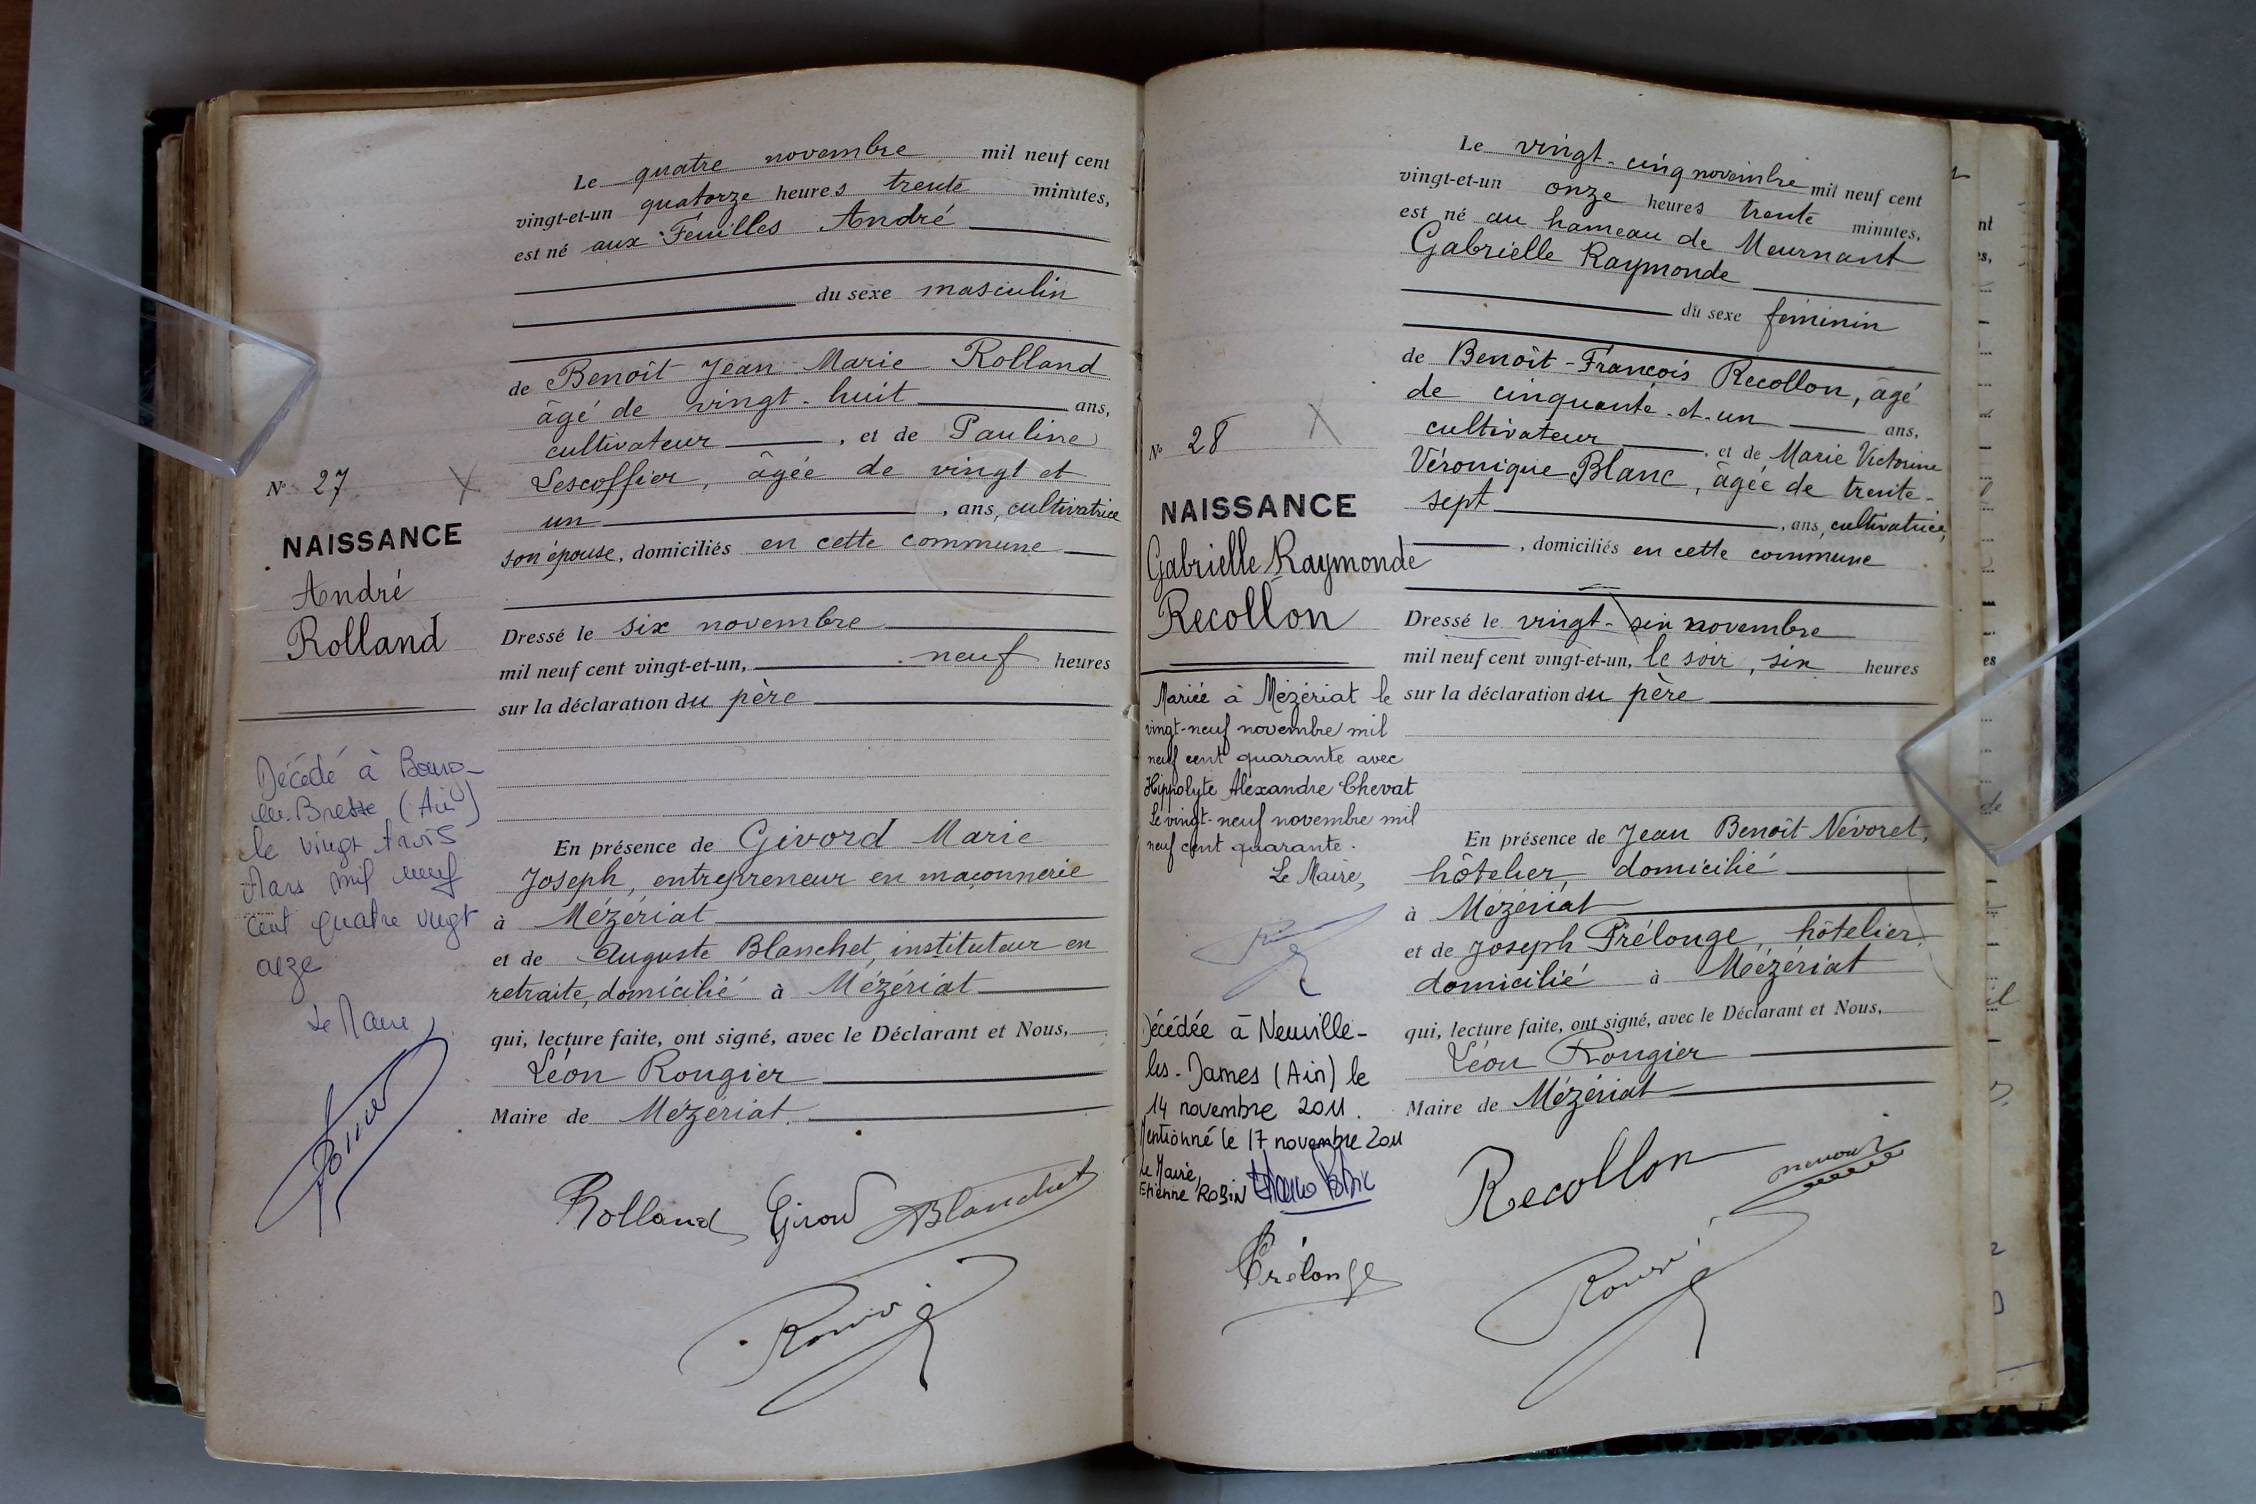 Le quatre novembre mil neuf cent
vingt-et-un quatorze heures trente minutes,
est né aux Feuilles André
du sexe masculin
de Benoît Jean Marie Rolland
âgé de vingt-huit ans,
cultivateur, et de Pauline
Lescoffier, âgée de vingt et
un, ans, cultivatrice
son épouse, domiciliés en cette commune
Dressé le six novembre
mil neuf cent vingt-et-un, neuf heures
sur la déclaration du père
En présence de Givord Marie
Joseph, entrepreneur en maçonnerie
à Mézériat
et de Auguste Blanchet, instituteur en
retraite, domicilié à Mézériat
qui, lecture faite, ont signé, avec le Déclarant et Nous,
Léon Rougier
Maire de Mézériat
Rolland Givord Blanchet
N° 27
NAISSANCE
André
Rolland
Décédé à Bourg-
en-Bresse (Ain)
le vingt trois
Mars mil neuf
cent quatre vingt
onze
Le Maire,
Le vingt-cinq novembre mil neuf cent
vingt-et-un onze heures trente minutes,
est né au hameau de Meurnant
Gabrielle Raymonde
du sexe féminin
de Benoît-François Recollon, âgé
de cinquante-et-un ans,
cultivateur, et de Marie Victorine
Véronique Blanc, âgée de trente-
sept, ans, cultivatrice,
, domiciliés en cette commune
Dressé le vingt-six novembre
mil neuf cent vingt-et-un, le soir, six heures
sur la déclaration du père
En présence de Jean Benoît Névoret,
hôtelier, domicilié
à Mézériat
et de Joseph Prélonge, hôtelier,
domicilié à Mézériat
qui, lecture faite, ont signé, avec le Déclarant et Nous,
Léon Rougier
Maire de Mézériat
Recollon
Prélonge
N° 28
NAISSANCE
Gabrielle Raymonde
Recollon
Mariée à Mézériat le
vingt-neuf novembre mil
neuf cent quarante avec
Hippolyte Alexandre Chevat
Le vingt-neuf novembre mil
neuf cent quarante.
Le Maire,
Décédée à Neuville-
les-Dames (Ain) le
14 novembre 2011.
Mentionné le 17 novembre 2011
Le Maire,
Etienne ROBIN